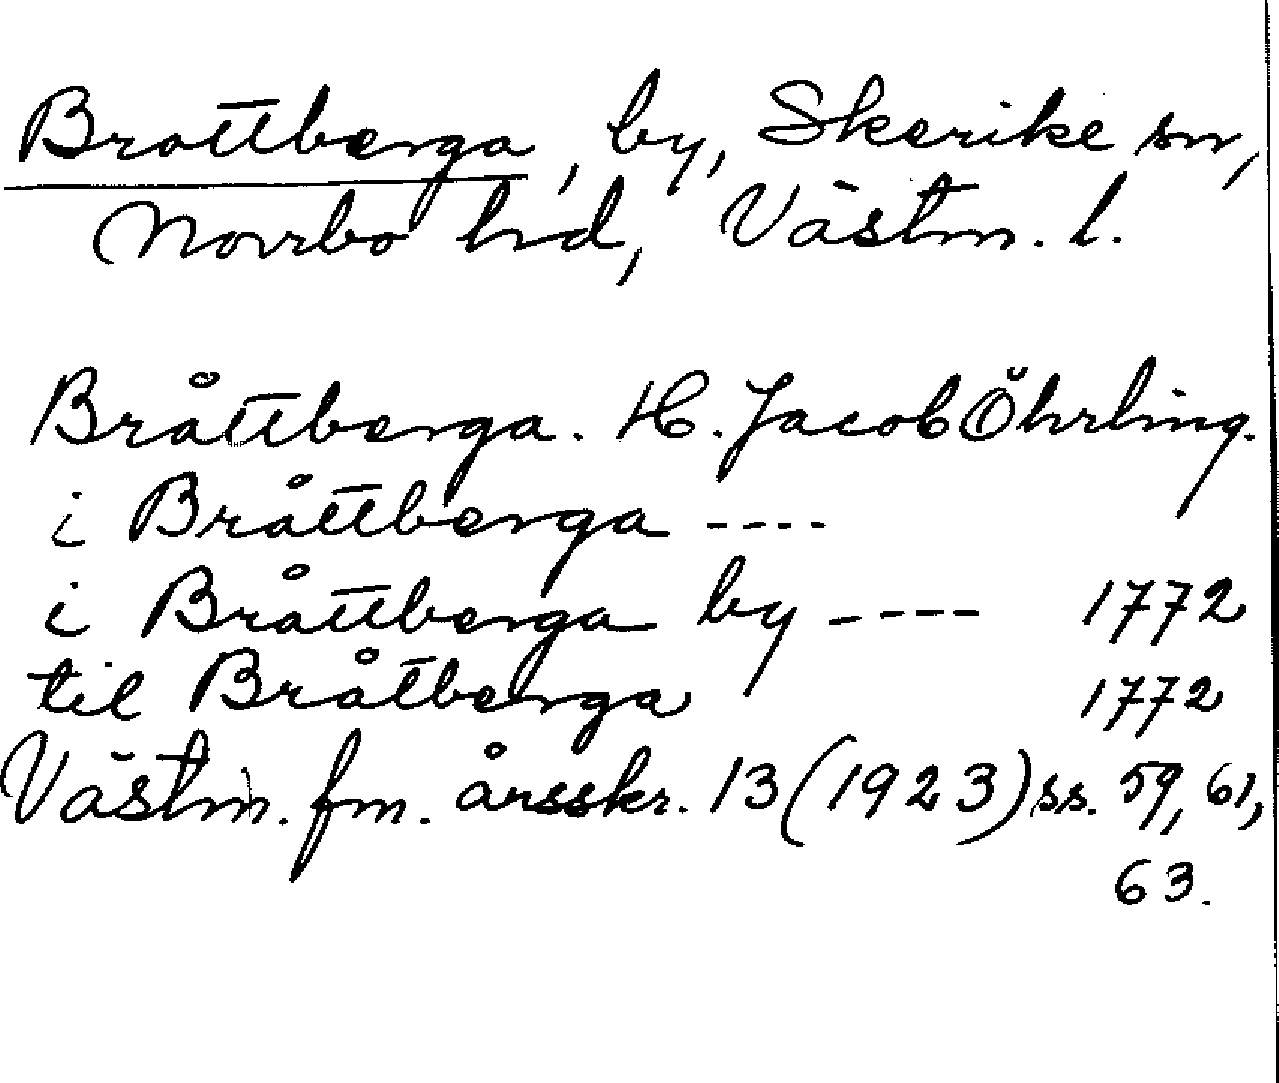 Brattberga, by, Skerike sn,
Norrbo hd, Västm. l.
Bråttberga. H. Jacob Öhrling.
i Bråttberga ----
i Bråttberga by ---- 1772
til Bråtberga 1772
Västm. fm. årsskr. 13 (1923) ss. 59, 61,
63.